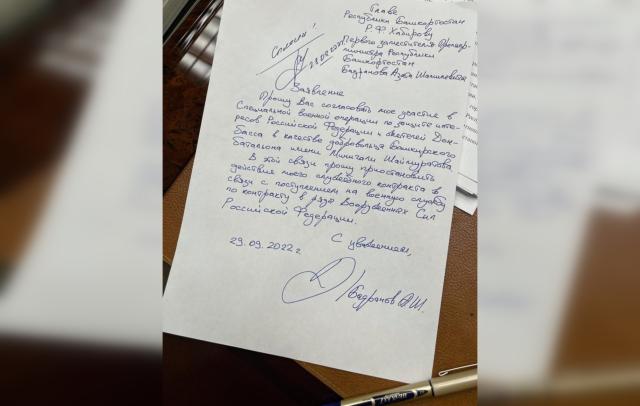 Главе
Республики Башкортостан
Р.Ф. Хабирову
Первого заместителя Премьер-
министра Республики
Башкортостан
Бадранова Азата Шамилевича
Согласен!
28.09.2022г.
Заявление
Прошу Вас согласовать мое участие в
Специальной военной операции по защите инте-
ресов Российской Федерации и жителей Дон-
басса в качестве добровольца Башкирского
батальона имени Минигали Шаймуратова.
В этой связи прошу приостановить
действие моего служебного контракта в
связи с поступлением на военную службу
по контракту в ряды Вооруженных Сил
Российской Федерации.
С уважением,
29.09.2022 г.
/Бадранов А.Ш.